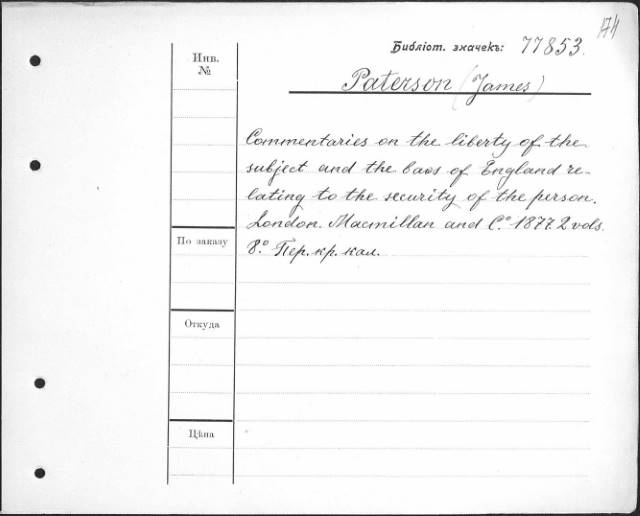 Библіот. значекъ: 77853.
Инв.
№
Paterson (James)
Commentaries on the liberty of the
subject and the baos of England re-
lating to the security of the person.
London. Macmillan and C.º 1877. 2 vols.
8.º Пер. кр. кал.
По заказу
Откуда
Цѣна